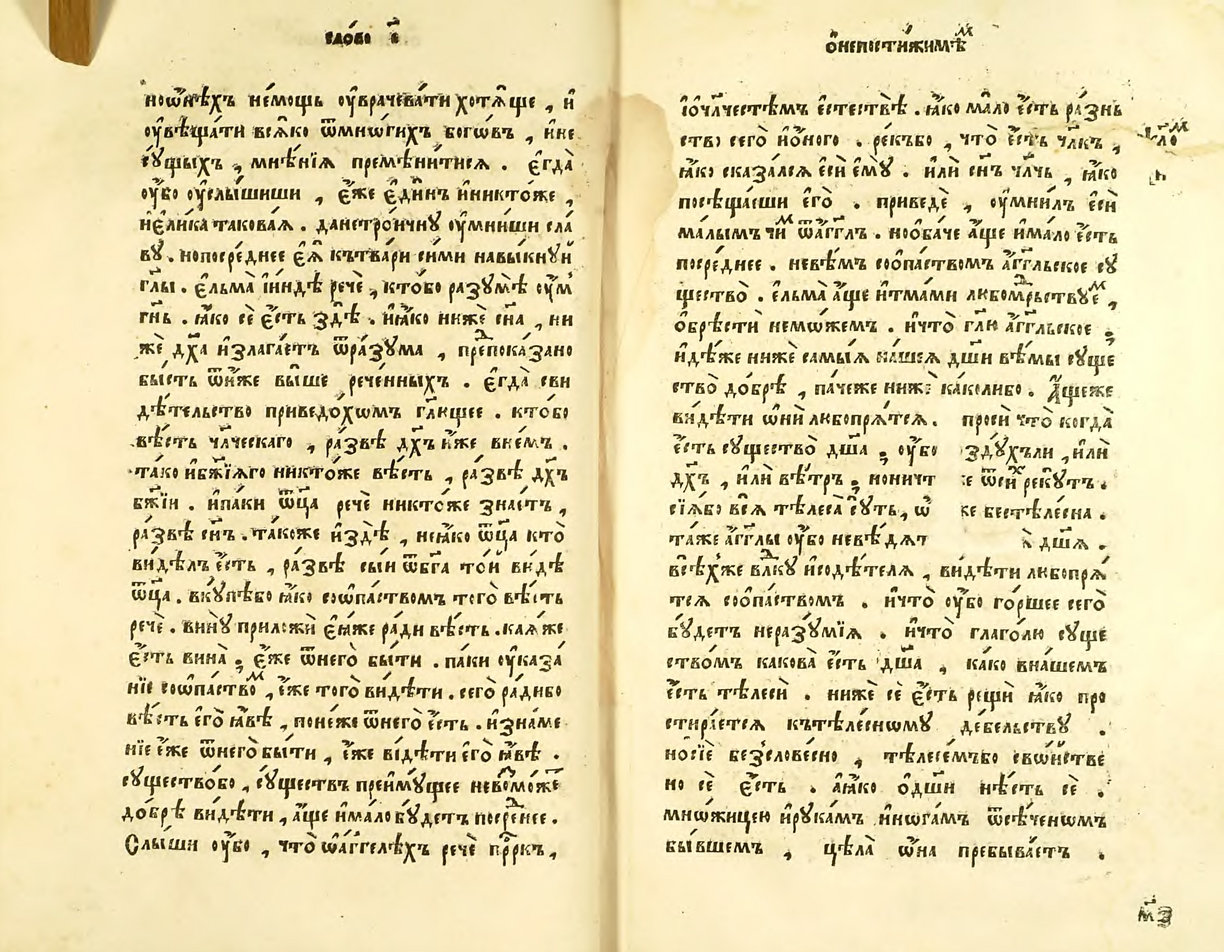 сло́во є҃
но ѡ҆нѣ́хъ не́мощь оу҆врачева́ти хотѧ́ще , и҆
оу҆вѣща́ти всѧ́ко ѿ мнѡ́гихъ богѡ́въ , и҆ не
су́щыхъ , мнѣ́нїѧ премѣни́тисѧ . є҆гда̀
оу҆́бо оу҆слы́шиши , є҆́же є҆ди́нъ и҆ никто́же ,
и҆ є҆ли́ка такова́ѧ . да не тро́ичнꙋ оу҆мни́ши сла́
вꙋ . но посре́днее є҆ѧ̀ къ тва́ри си́ми навыкнꙋ́ти
гл҃ы . є҆льма̀ и҆ и҆ндѣ̀ речѐ , кто́ бо разꙋмѣ̀ оу҆́м
гн҃ь . ꙗ҆́ко сѐ є҆́сть здѣ̀ . и҆ ꙗ҆́ко нижѐ сн҃а , ни
жѐ дх҃а и҆злага́етъ ѿ ра́зꙋма , пре́дпоказано
бы́сть ѿ и҆́же вы́ше рече́нныхъ . є҆гда̀ сви
дѣ́тельство приведо́хѡмъ гл҃ющее . кто́ бо
вѣ́сть чл҃ческаго , ра́звѣ дх҃ъ и҆́же в не́мъ .
та́ко и҆ бж҃їѧго никто́же вѣ́сть , ра́звѣ дх҃ъ
бж҃їи . и҆ па́ки ѿц҃а речѐ никто́же зна́етъ ,
ра́звѣ сн҃ъ . та́коже и҆ здѣ̀ , не ꙗ҆́ко ѿц҃а кто̀
ви́дѣлъ є҆́сть , ра́звѣ сы́и ѿ бг҃а то́и ви́дѣ
ѿц҃а . вкꙋ́пѣ бо ꙗ҆́ко соѡпа́ством того̀ вѣ́сть
речѐ . винꙋ̀ приложѝ є҆ѧ́же ра́ди вѣ́сть . ка́ѧ же
є҆́сть вина̀ ; є҆́же ѿ него̀ бы́ти . па́ки оу҆каза́
нїе соѡпа́ством , є҆́же того̀ ви́дѣти . сего̀ ра́ди бо
вѣ́сть є҆го̀ ꙗ҆́вѣ , поне́же ѿ него̀ є҆́сть . и҆ зна́ме
нїе є҆́же ѿ него̀ бы́ти , є҆́же ви́дѣти є҆го̀ ꙗ҆́вѣ .
сꙋщество́ бо , сꙋ́ществъ преимꙋ́щее невозмо́же
до́брѣ ви́дѣти , а҆́ще и҆ ма́ло бꙋ́детъ посре́днее .
Слы́ши оу҆́бо , что̀ ѡ҆ а҆́ггелѣхъ речѐ пр҃ркъ ,
ѡ҆ непости́жимѣм
и҆ ѡ҆ чл҃честѣмъ є҆стествѣ̀ . ꙗ҆́ко ма́ло є҆́сть ра́знь
ство сего̀ и҆ ѻ҆́ного . ре́къ бо , что̀ є҆́сть чл҃къ ,
ꙗ҆́ко сказа́лсѧ є҆сѝ є҆мꙋ̀ . и҆лѝ сн҃ъ чл҃чь , ꙗ҆́ко
посѣща́еши є҆го̀ . приведѐ , оу҆мни́лъ є҆сѝ
ма́лымъ чим ѿ а҆́ггл҃ъ . но ѻ҆ба́че а҆́ще и҆ ма́ло є҆́сть
посре́днее . не вѣ́мъ соѻпа́ством а҆́гг҃льское сꙋ
щество̀ . є҆льма̀ а҆́ще и҆ тма́ми любомꙋ́дрьствꙋем ,
ѻ҆брѣстѝ не мо́жемъ . и҆ что̀ гл҃ю а҆́гг҃льское ;
и҆дѣ́же нижѐ самы́ѧ на́шеѧ дш҃и вѣ́мы сꙋще
ство̀ до́брѣ , па́чеже нижѐ ка́колибо . А҆́щеже
ви́дѣти ѡ҆нѝ любопрѧ́тсѧ . проси̑ что̀ когда̀
є҆́сть сꙋщество̀ дш҃а ; оу҆́бо здꙋ́хъ ли , и҆лѝ
дх҃ъ , и҆лѝ вѣ́тръ ; но ничт е ѿ сих рекꙋ́тъ .
сїѧ́ бо всѧ̀ тѣлеса̀ сꙋ́ть , ѡ҆ же бестѣле́сна .
та́же а҆́гг҃лы оу҆́бо не вѣ́дѧт дш҃ѧ .
всѣ́х же влⷣкꙋ и҆ содѣ́телѧ , ви́дѣти любопрѧ́
тсѧ соѻпа́ством . и҆ что̀ оу҆́бо го́ршее сего̀
бꙋ́детъ неразꙋ́мїѧ . и҆ что̀ глаго́лю сꙋще
ство́мъ какова̀ є҆́сть дш҃а , ка́ко в на́шемъ
є҆́сть тѣлесѝ . нижѐ сѐ є҆́сть рещѝ ꙗ҆́ко про
стира́етсѧ къ тѣле́сномꙋ дебе́льствꙋ .
но сїѐ безслове́сно , тѣлесе́мъ бо сво́йстве
но сѐ є҆́сть . а҆ ꙗ҆́ко ѻ҆ дш҃и нѣ́сть сѐ .
мно́жицею и҆ рꙋка́мъ и҆ нога́мъ ѿсѣ́ченомъ
бы́вшемъ , цѣла̀ ѡ҆на̀ пребыва́етъ .
м҃з